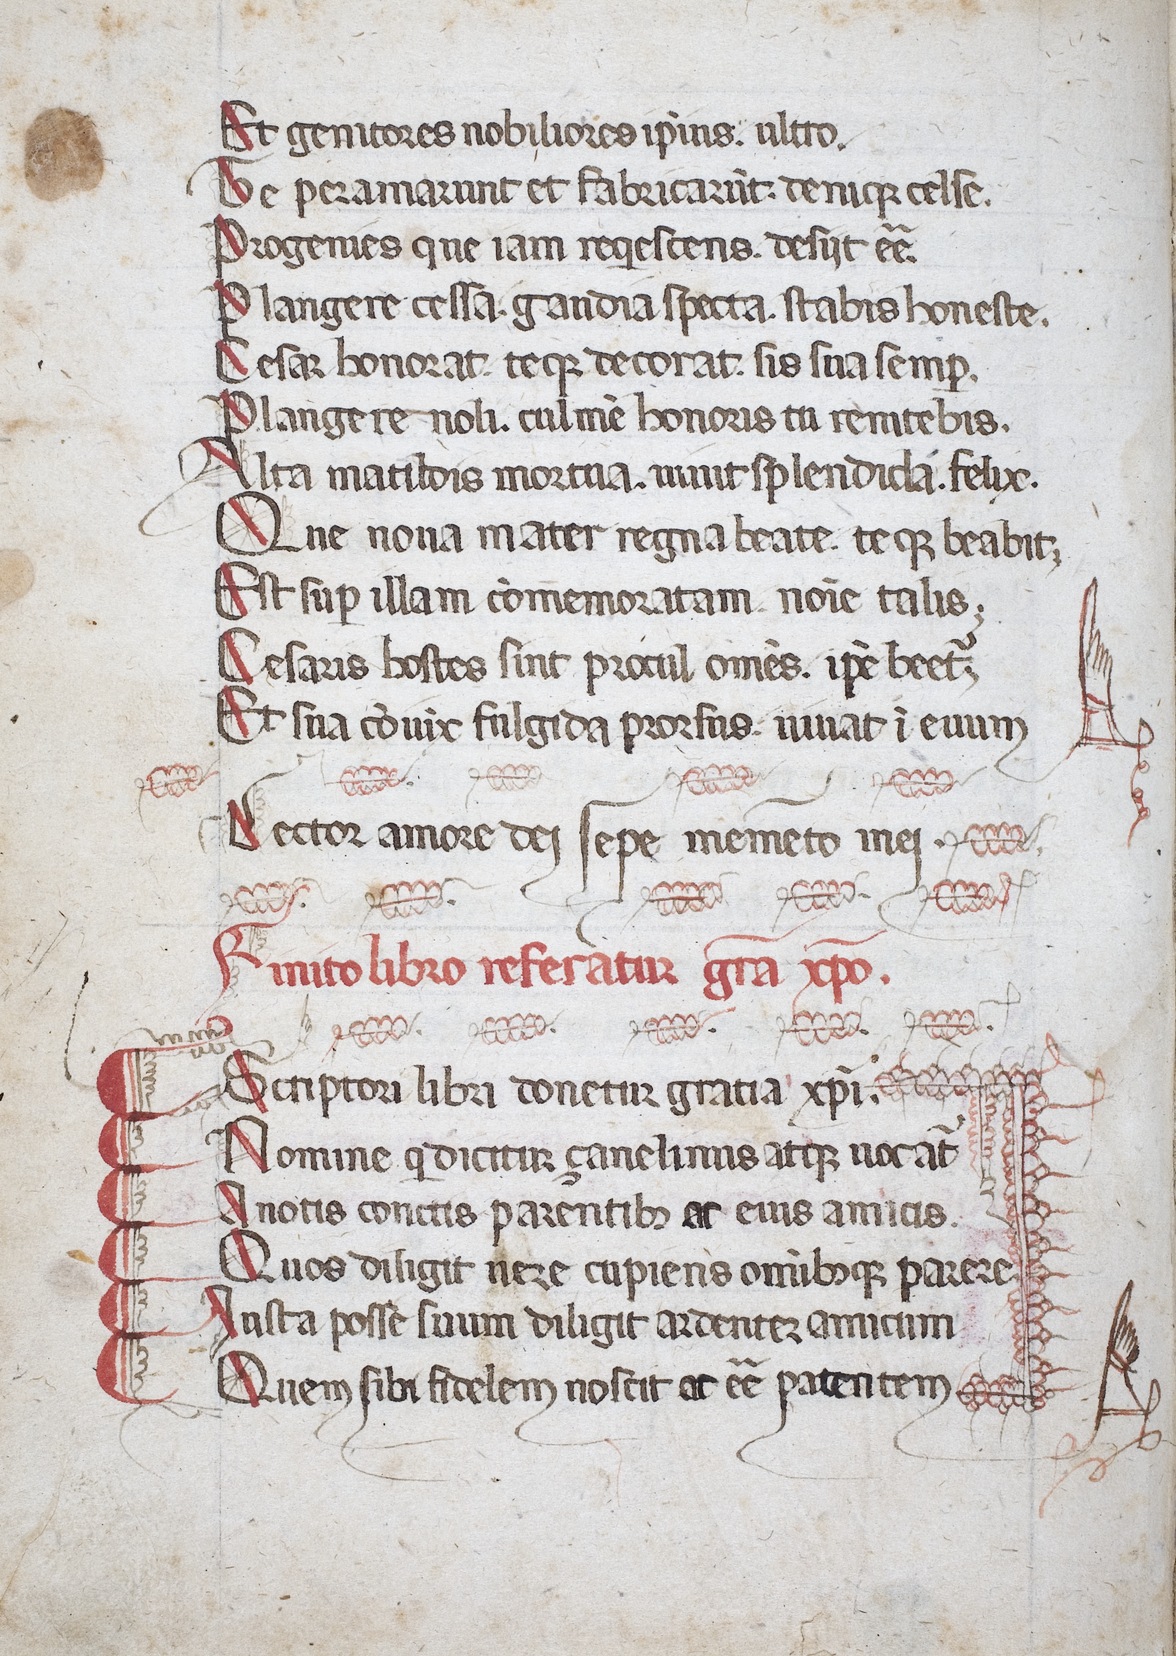 Et genitores nobiliores ip̄ius. ultro.
Te peramarunt et fabricarūt. deniqꝫ celse.
Progenies que iam reqescens. desijt eē.
Plangere cessa. gaudia specta. stabis honeste.
Cesar honorat. teqꝫ decorat. sis sua semꝑ.
Plangere noli. culmīe honoris tu renitebis.
Alta matildis mortua. uiuit splendida. felix.
Que noua mater regna beate. teqꝫ beabit;
Est suꝑ illam cōmemoratam. noīe talis;
Cesaris hostes sint procul omēs. ip̄e beet᷑;
Et sua cōuix fulgida prorsus. uiuat ī euum
Lector amore dej sepe memēto mej.
Finito libro referatur gr̄a xp̄o.
Scriptori libri donetur gratia xp̄i.
Nomine q dicitur çanelinus atqꝫ uocat᷑
A notis conctis parentibꝫ ac eius amicis.
Quos diligit uere cupiens omībꝫqꝫ parere
Iusta posse suum diligit ardenter amicum
Quem sibi fidelem noscit ac eē patentem